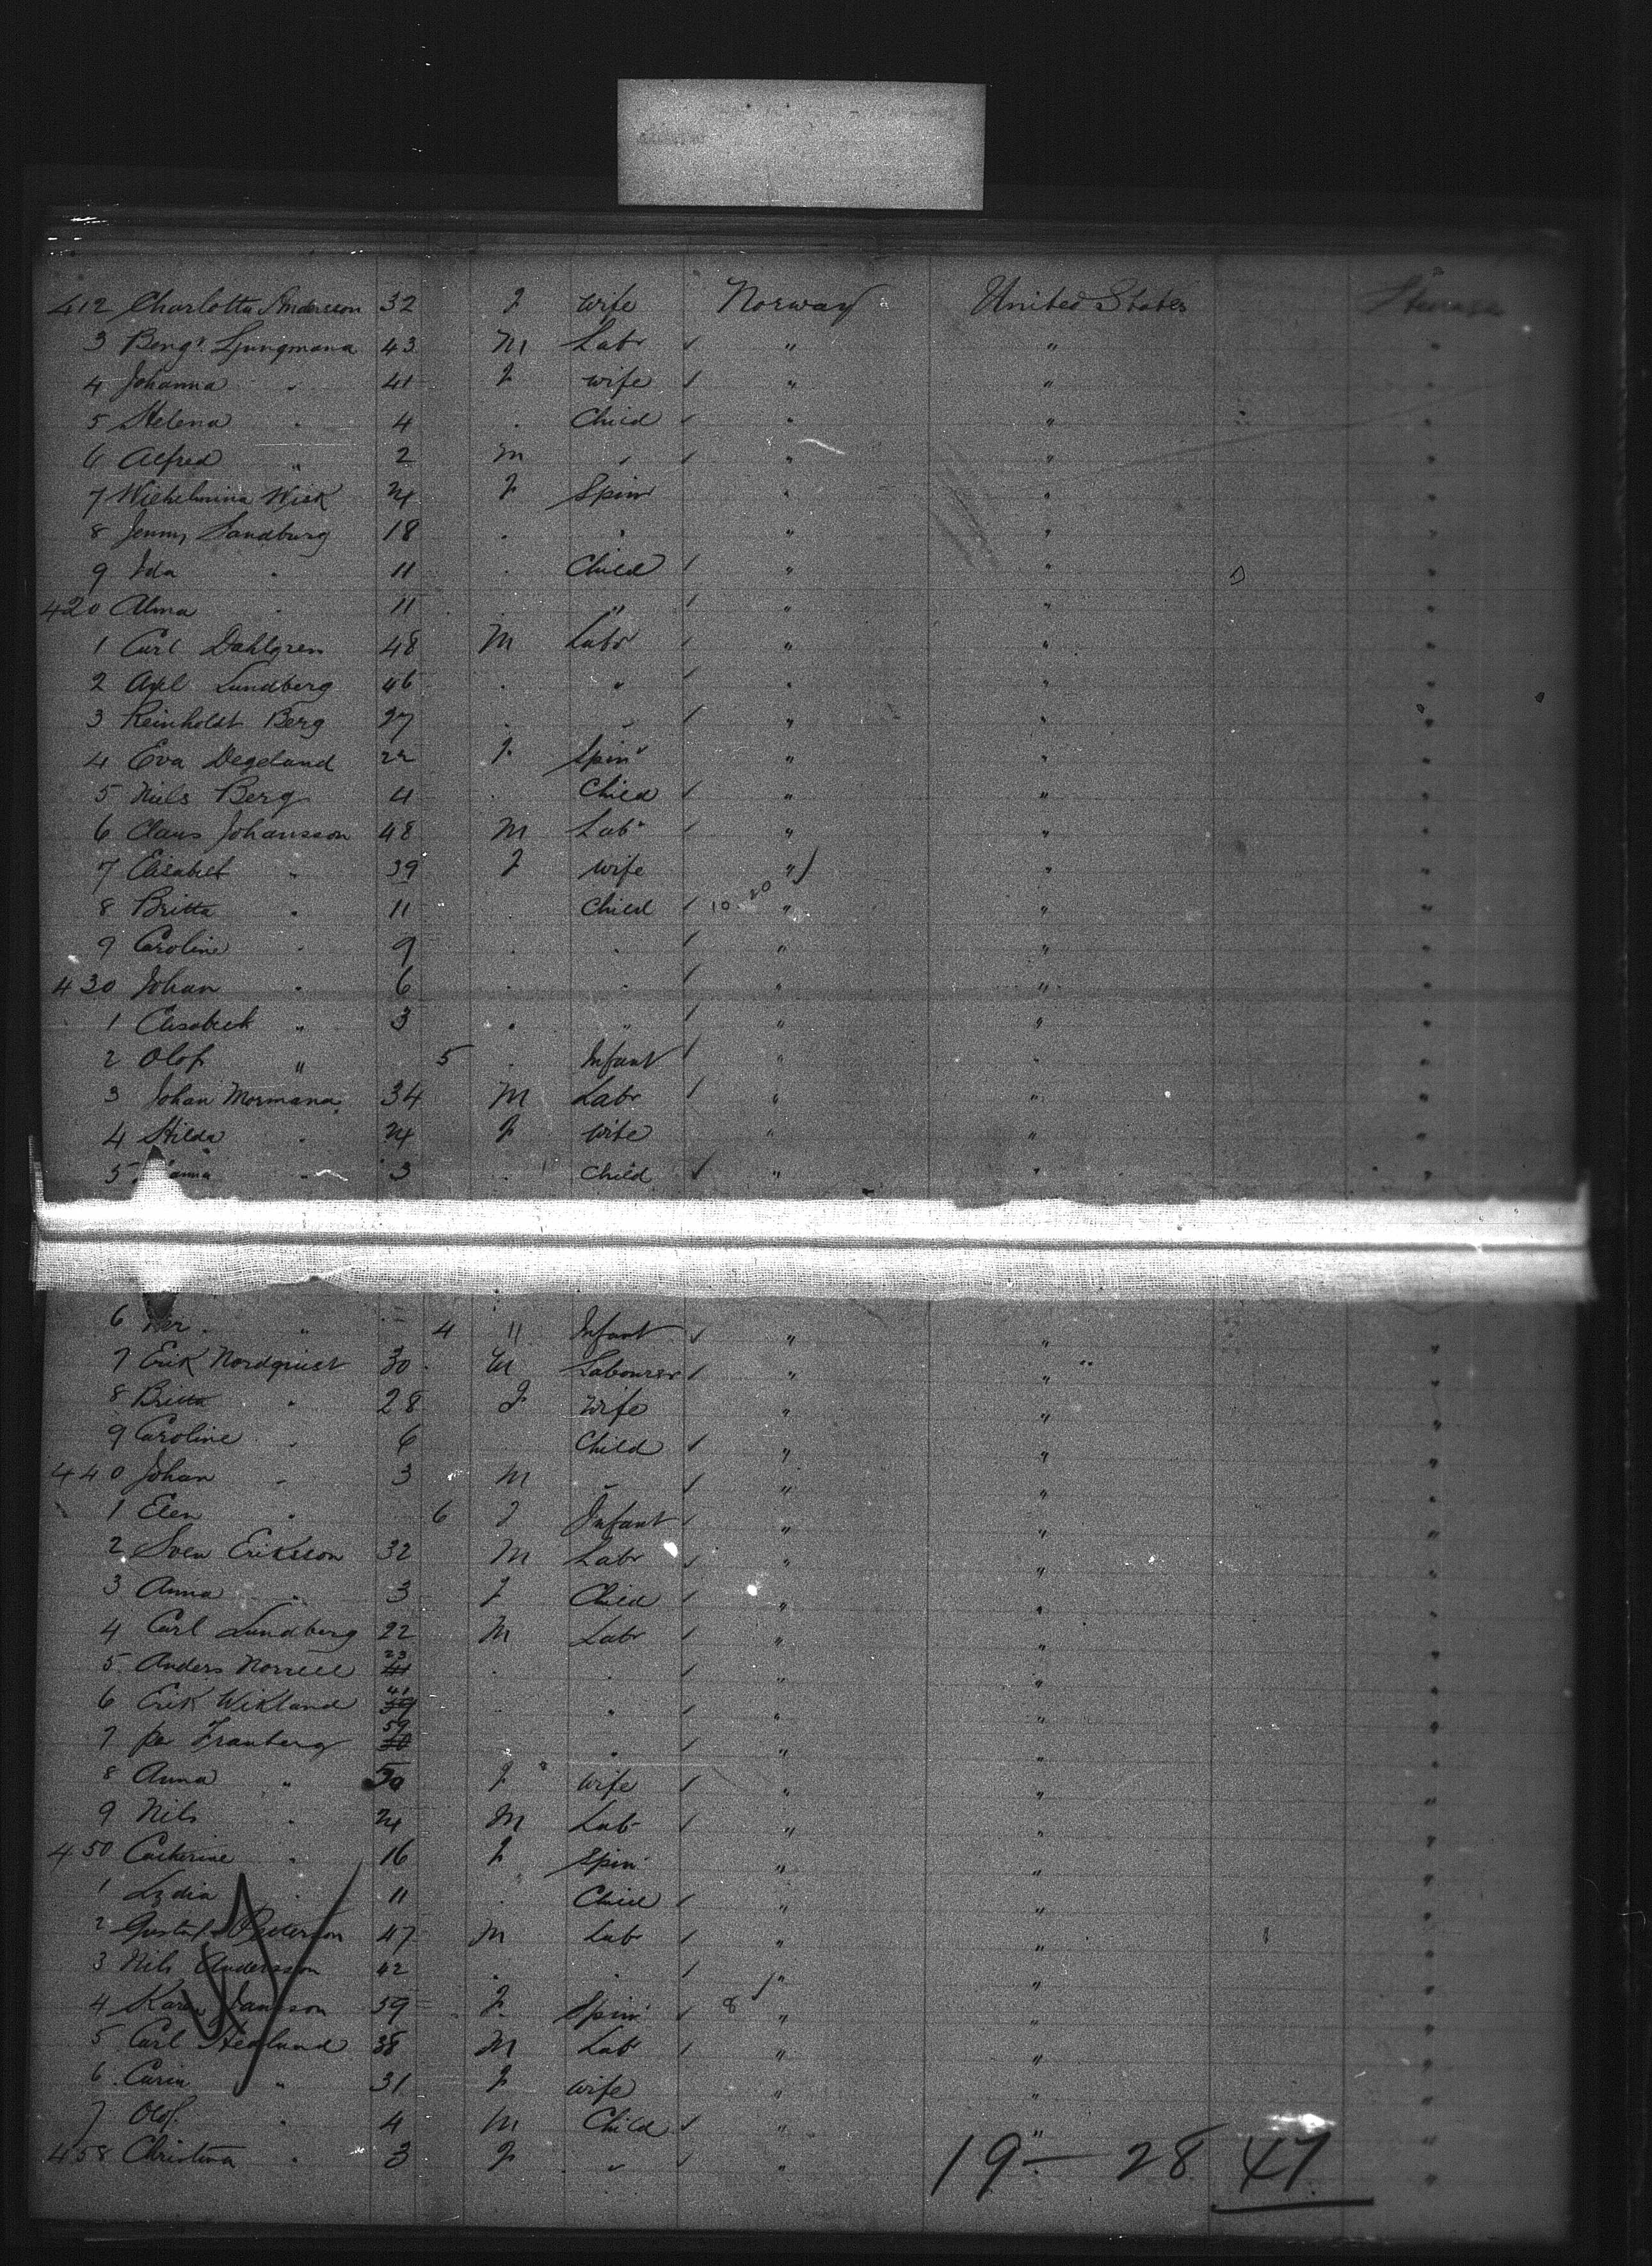 412 Charlotta Andersson 32 F wife Norway United States Steerage
3 Bengt Ljungmana 43 M Labr ✓ " " "
4 Johanna " 41 F wife ✓ " " "
5 Helena " 4 " Child ✓ " " "
6 Alfred " 2 M " ✓ " " "
7 Wilhelmina Wick 24 F Spinr " " "
8 Jenny Sandburg 18 " " " " "
9 Ida " 11 " Child ✓ " " "
420 Alma " 11 " " ✓ " " "
1 Carl Dahlgren 48 M Labr ✓ " " "
2 Axel Lundberg 46 " " ✓ " " "
3 Reinholdt Berg 27 " " ✓ " " "
4 Eva Degelund 22 F Spinr " " "
5 Niels Berg 4 " Child ✓ " " "
6 Claus Johansson 48 M Labr ✓ " " "
7 Elisabet " 39 F wife " " "
8 Britta " 11 " Child ✓ 10 20 " " "
9 Caroline " 9 " " ✓ " " "
430 Johan " 6 " " ✓ " " "
1 Elisabeth " 3 " " ✓ " " "
2 Olof " 5 " Infant ✓ " " "
3 Johan Mormana 34 M Labr ✓ " " "
4 Hilda " 24 F wife " " "
5 " 3 " Child ✓ " " "
6 " 4 " Infant ✓ " " "
7 Erik Nordquist 30 M Labourer ✓ " " "
8 Britta " 28 F Wife " " "
9 Caroline " 6 Child ✓ " " "
440 Johan " 3 M " ✓ " " "
1 Elen " 6 F Infant ✓ " " "
2 Sven Eriksson 32 M Labr ✓ " " "
3 Anna " 3 F Child ✓ " " "
4 Carl Lundberg 22 M Labr ✓ " " "
5 Anders Norrell 23 41 " " ✓ " " "
6 Erik Wikland 41 59 " " ✓ " " "
7 Per Franberg 59 50 " " ✓ " " "
8 Anna " 50 F wife ✓ " " "
9 Nils " 24 M Labr ✓ " " "
450 Catherine " 16 F Spinr " " "
1 Lydia " 11 " Child ✓ " " "
2 Gustaf Petterson 47 M Labr ✓ " " "
3 Nils Andersson 42 " " ✓ " " "
4 Karen Jansson 59 F Spinr ✓ 8 " " "
5 Carl Hedlund 38 M Labr ✓ " " "
6 Carin " 31 F wife " " "
7 Olof " 4 M Child ✓ " " "
458 Christina " 3 F " ✓ " " "
19 - 28 47